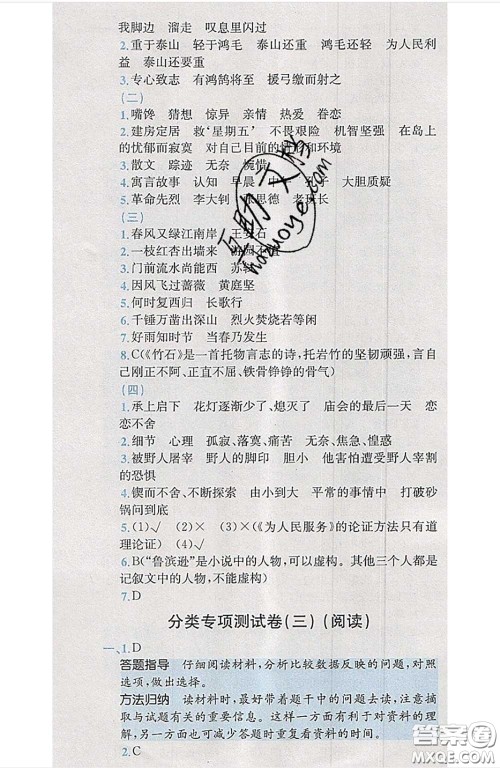 我脚边 溜走 叹息里闪过
2.重于泰山 轻于鸿毛 泰山还重 鸿毛还轻 为人民利
益 泰山还要重
3.专心致志 有鸿鹄将至 援弓缴而射之
(二)
1.嘴馋 猜想 惊异 亲情 热爱 眷恋
2.建房定居 救‘星期五’ 不畏艰险 机智坚强 在岛上
的忧郁而寂寞 对自己目前的情形和环境
3.散文 踪迹 无奈 惋惜
4.寓言故事 认知 早晨 中午 孔子 大胆质疑
5.革命先烈 李大钊 周思德 老班长
(三)
1.春风又绿江南岸 王安石
2.一枝红杏出墙来 游园不值
3.门前流水尚能西 苏轼
4.因风飞过蔷薇 黄庭坚
5.何时复西归 长歌行
6.千锤万凿出深山 烈火焚烧若等闲
7.好雨知时节 当春乃发生
8.C(《竹石》是一首托物言志的诗,托岩竹的坚韧顽强,言自
己刚正不阿、正直不屈、铁骨铮铮的骨气)
(四)
1.承上启下 花灯逐渐少了、熄灭了 庙会的最后一天 恋
恋不舍
2.细节 心理 孤寂、落寞、痛苦 无奈、焦急、惶惑
3.被野人屠宰 野人的脚印 胆小 他害怕遭受野人宰割
的恐惧
4.锲而不舍、不断探索 由小到大 平常的事情中 打破砂
锅问到底
5.(1)√ (2)× (3)×(《为人民服务》的论证方法只有道
理论证) (4)√
6.B(“鲁滨逊”是小说中的人物,可以虚构。其他三个人都是
记叙文中的人物,不能虚构)
7.D
分类专项测试卷(三)(阅读)
一、1.D
答题指导 仔细阅读材料,分析比较数据反映的问题,对照
选项,做出选择。
方法归纳 读材料时,最好带着题干中的问题去读,注意摘
取与试题有关的重要信息。这样一方面有利于对资料的理
解,另一方面也可减少答题时重复看资料的时间。
2.C
hozuoye.com
答案圈
MXQE.COM